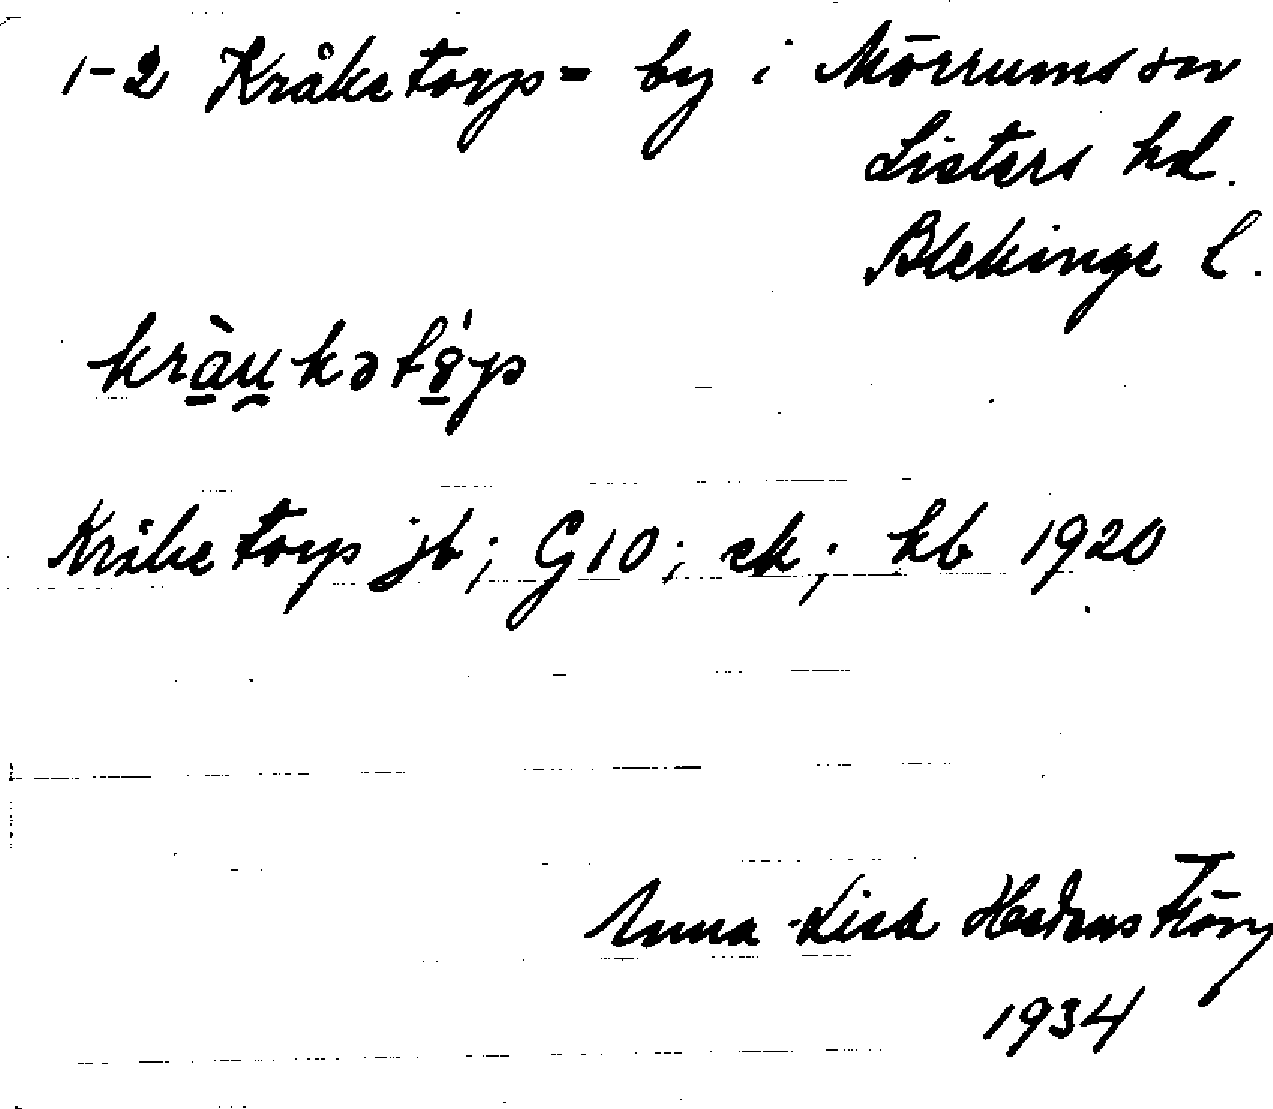 1-2 Kråketorp - by i Mörrums sn
Listers hd.
Blekinge l.
Kråketorp jb; G10; ek; kb 1920
Anna-Lisa Hedenström
1934